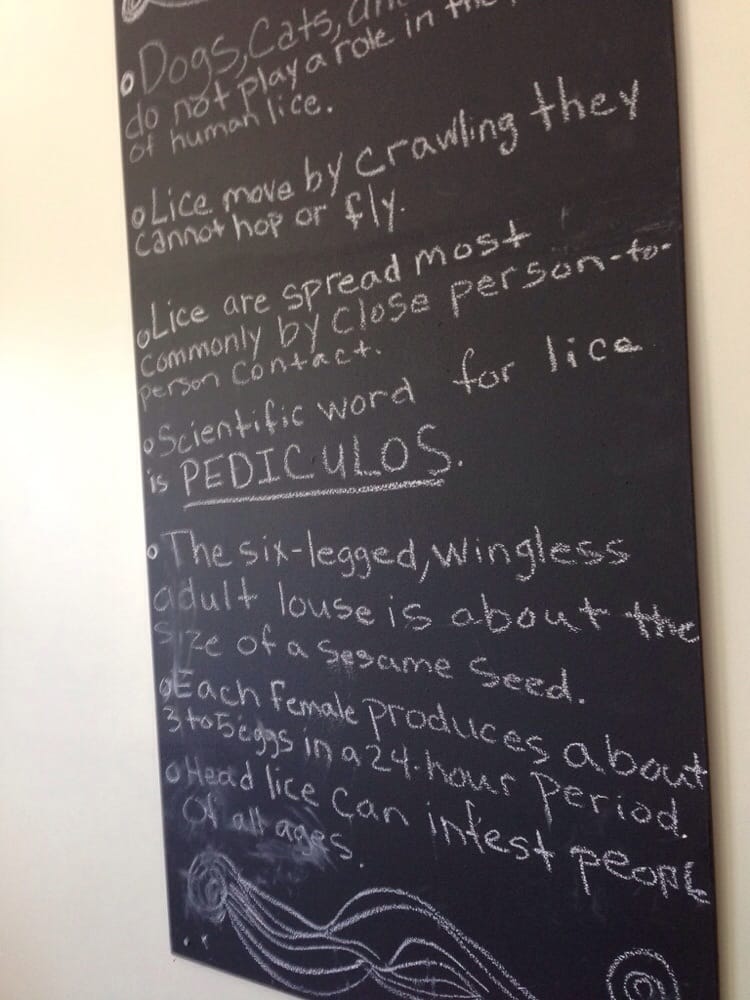 Dogs, Cats, an
do not play a role in the
of human lice.
Lice move by crawling they
cannot hop or fly.
Lice are spread most
commonly by close person-to-
person contact.
Scientific word for lice
is PEDICULOS.
The six-legged, wingless
adult louse is about the
size of a sesame seed.
Each female produces about
3 to 5 eggs in a 24-hour period.
Head lice can infest peopl
Of all ages.